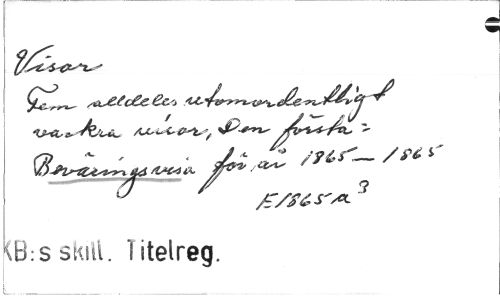 Visor
Fem alldeles utomordentligt
vackra visor, Den första:
Beväringsvisa för år 1865 — 1865
E1865a³
KB:s skill. Titelreg.